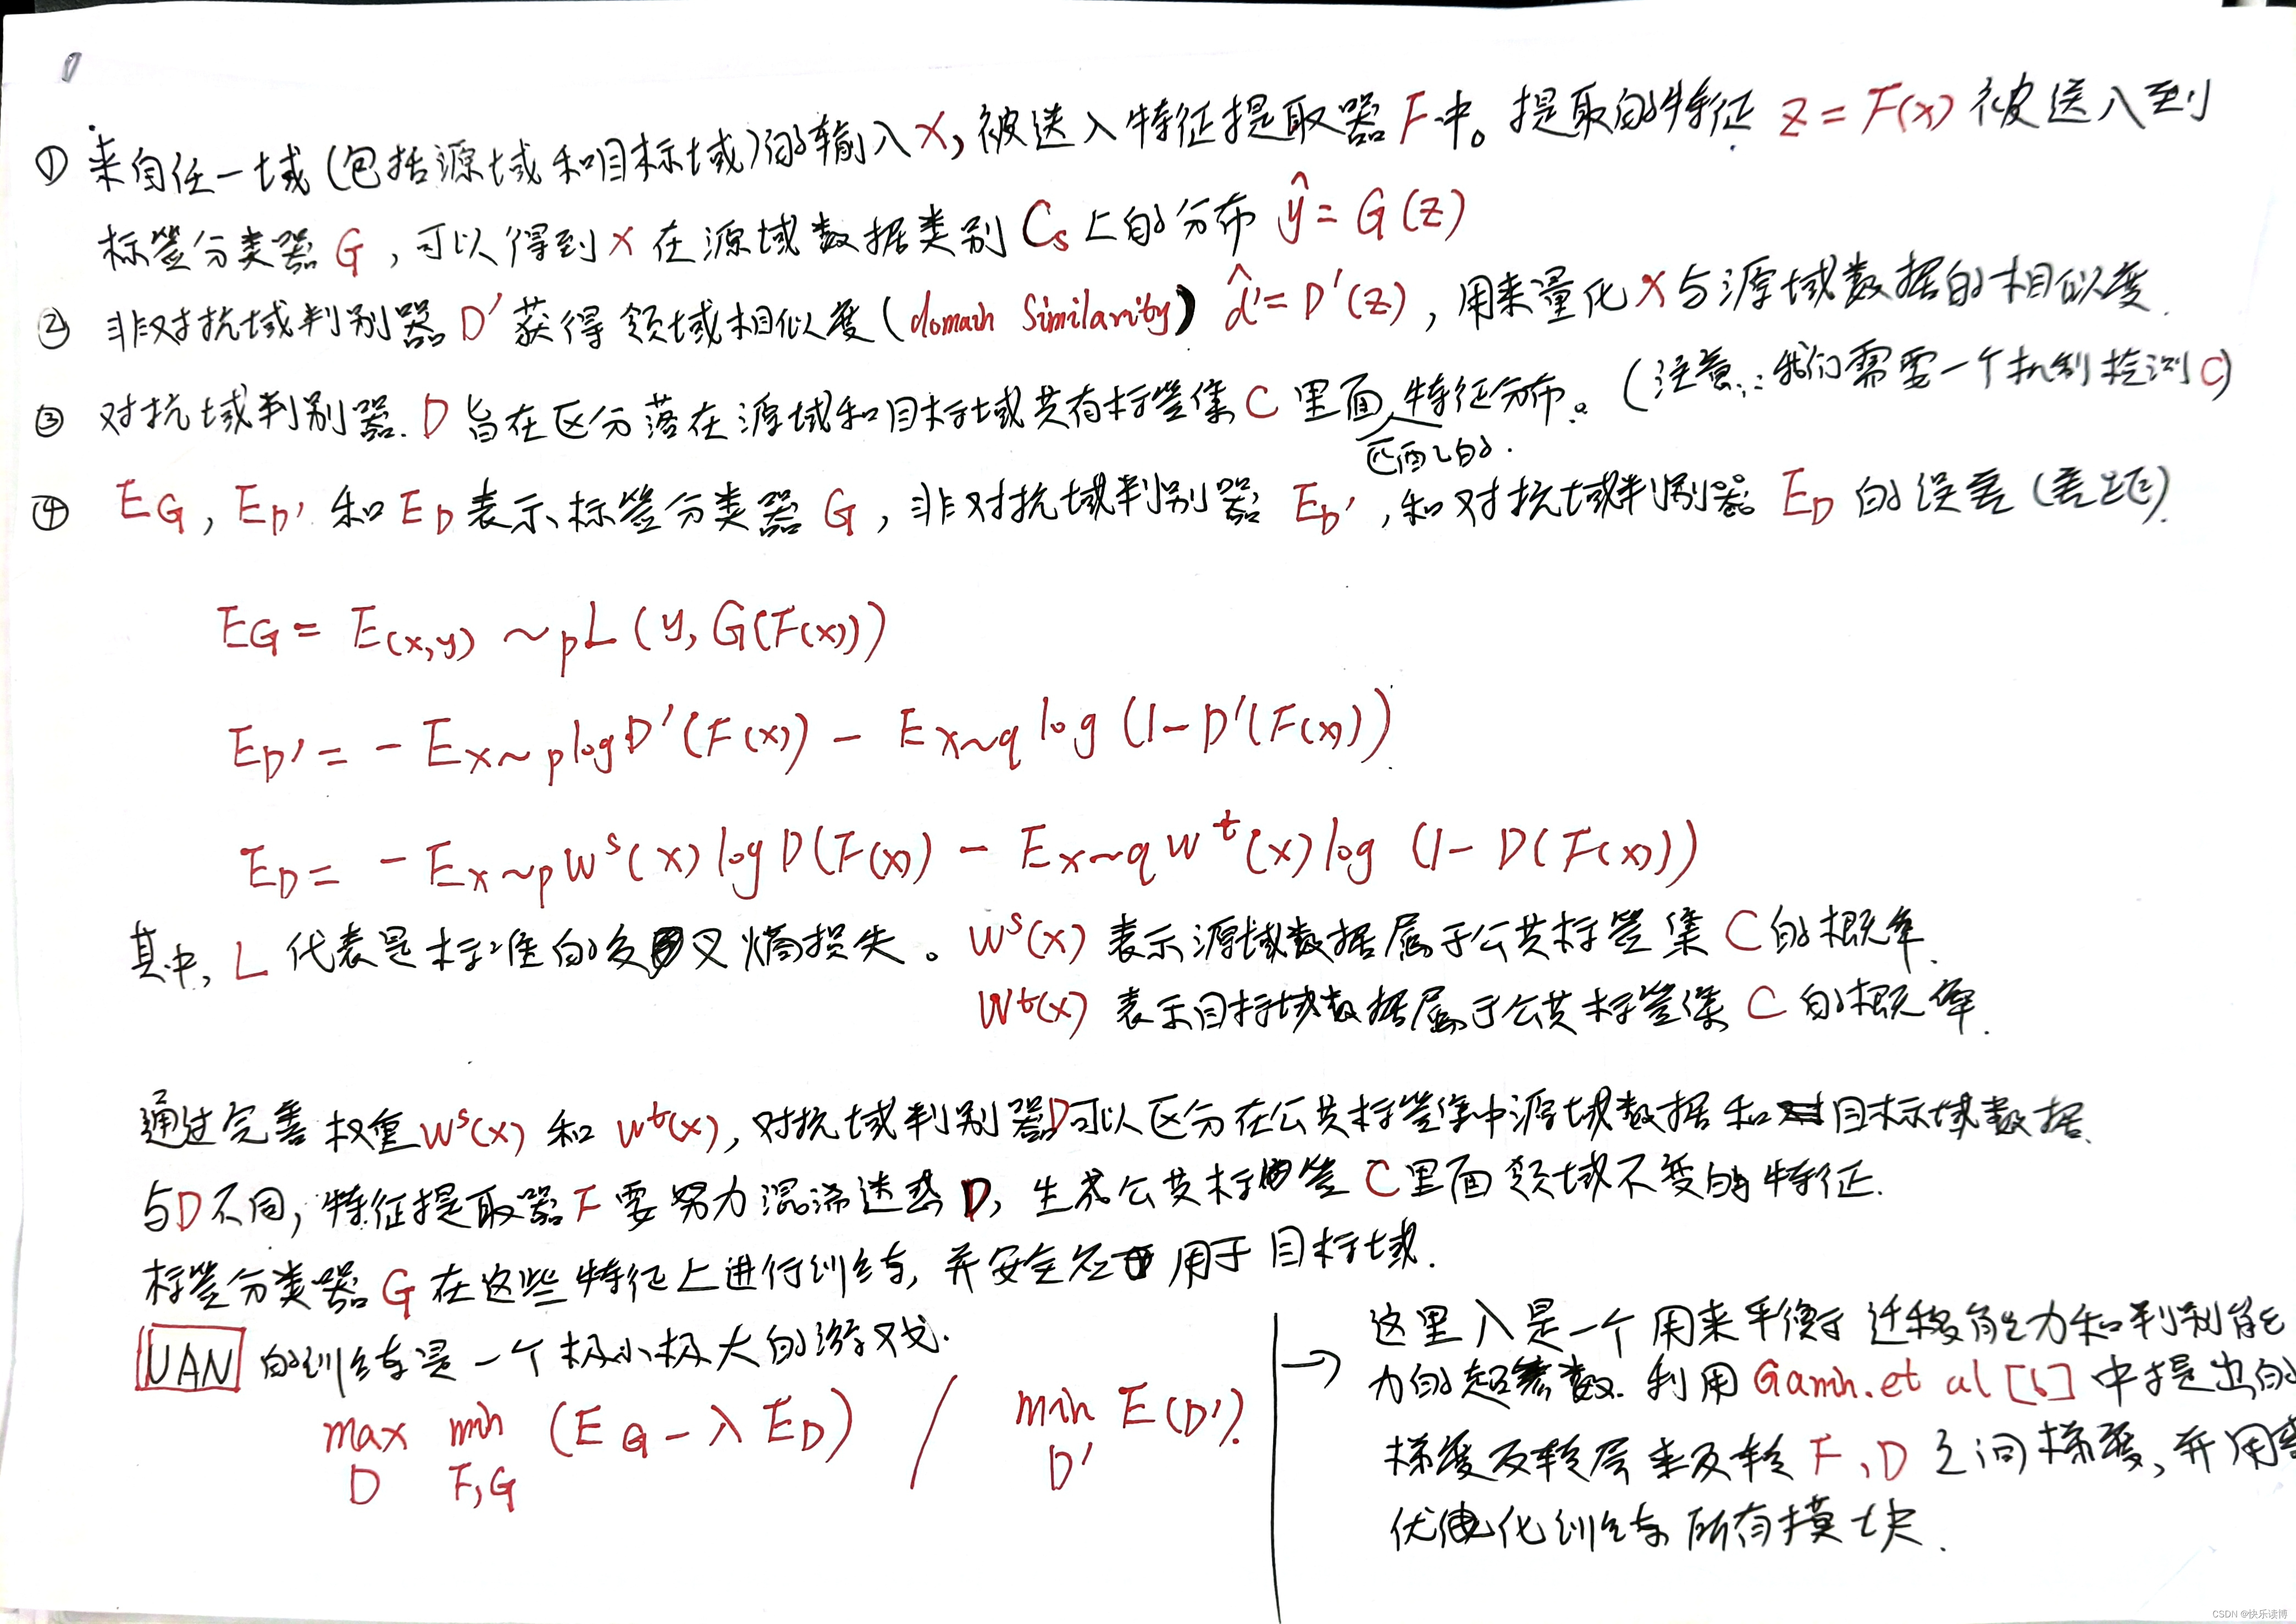 ① 来自任一域(包括源域和目标域)的输入X,被送入特征提取器F中。提取的特征 z=F(x) 被送入到
标签分类器G,可以得到X在源域数据类别Cs上的分布 ŷ=G(z)
② 非对抗域判别器D'获得领域相似度(domain Similarity) d̂'=D'(z),用来量化X与源域数据的相似度.
③ 对抗域判别器.D旨在区分落在源域和目标域共有标签集C里面特征分布。(注意:我们需要一个机制检测C)
匹配的.
④ EG, ED' 和 ED表示标签分类器G,非对抗域判别器 ED',和对抗域判别器 ED 的误差(差距).
EG = E(x,y) ~p L(y, G(F(x)))
ED' = - Ex~p log D'(F(x)) - Ex~q log (1-D'(F(x)))
ED = - Ex~p W^s(x) log D(F(x)) - Ex~q W^t(x) log (1- D(F(x)))
其中, L 代表是标准的交叉熵损失。 W^s(x) 表示源域数据属于公共标签集 C的概率.
W^t(x) 表示目标域数据属于公共标签集 C 的概率.
通过完善权重W^s(x) 和 W^t(x),对抗域判别器D可以区分在公共标签集中源域数据和目标域数据.
与D不同,特征提取器F要努力混淆迷惑D,生成公共标签C里面领域不变的特征.
标签分类器G在这些特征上进行训练,并安全应用于目标域.
UAN 的训练是一个极小极大的游戏.
max min (EG - λ ED) / min E(D').
D F,G D'
→ 这里λ是一个用来平衡于迁移能力和判别能
力的超参数.利用Ganin.et al[6]中提出的
梯度反转层来反转F、D之间梯度,并用
优化训练所有模块.
CSDN @快乐读博